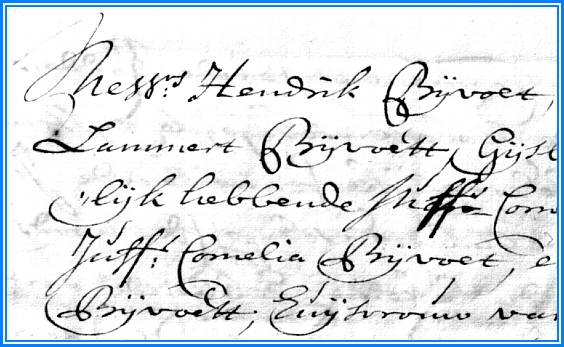 Mess.rs Hendrik Bijvoet,
Lammert Bijvoett, Gijst
lijk hebbende Juff.r Corn
Juff.r Cornelia Bijvoet, e
Bijvoett, Huijsvrouw van